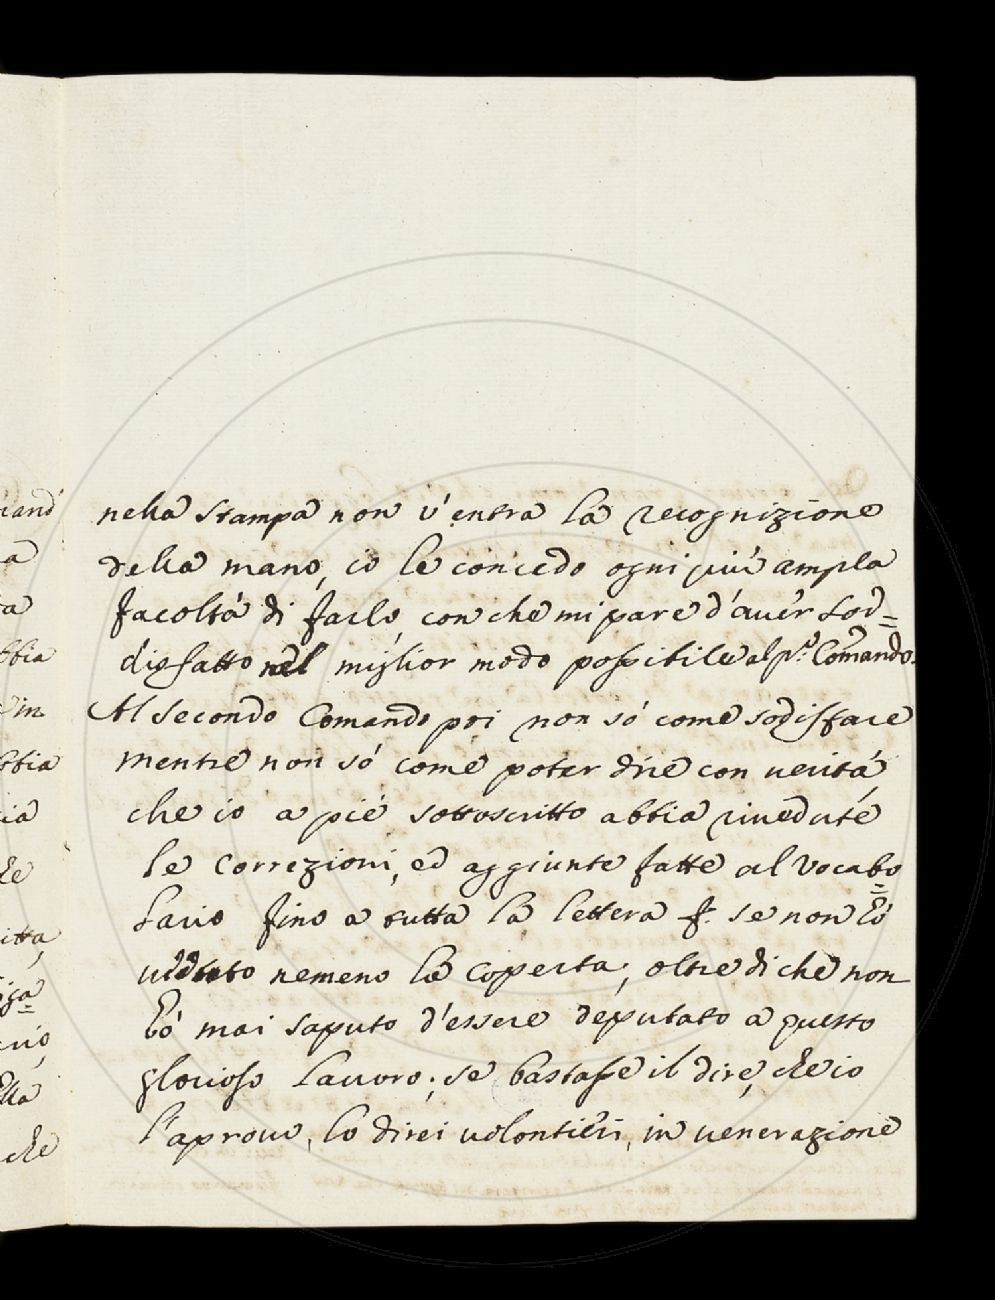 nella stampa non v'entra la recognizione
della mano, io le concedo ogni più ampla
facoltà di farlo con che mi pare d'aver sod=
disfatto nel miglior modo possibile al p.º Comando.
Al secondo Comando poi non só come sodisfare
mentre non só come poter dire con verità
che io a piè sottoscritto abbia rivedute
le correzioni, ed aggiunte fatte al Vocabo
=
lario fino a tutta la lettera f. se non hó
veduto nemeno la coperta, oltre di che non
hó mai saputo d'essere deputato a questo
glorioso lavoro; se bastasse il dire, che io
l'aprovo, lo direi volontieri, in venerazione